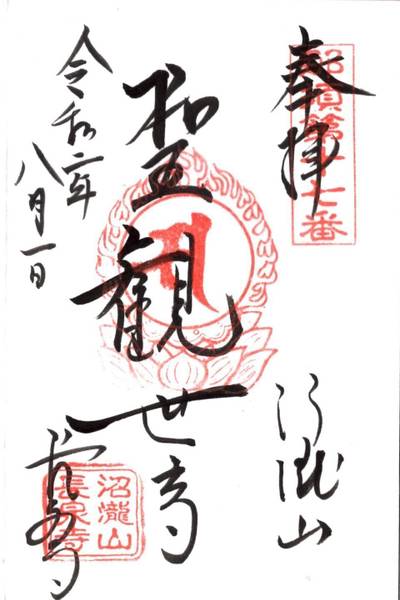 奉拝
那須第十七番
沼瀧山
聖観世音
長泉寺
沼瀧山
長泉寺
令和二年
八月一日